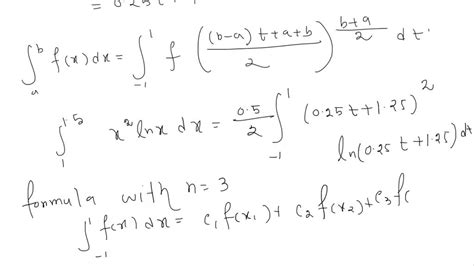 = 0.25t + 1
∫_a^b f(x) dx = ∫_{-1}^1 f ( ((b-a) t + a + b) / 2 ) (b+a)/2 dt
∫_1^{1.5} x² ln x dx = 0.5/2 ∫_{-1}^1 (0.25 t + 1.25)²
ln (0.25 t + 1.25) dt
formula with n = 3
∫_{-1}^1 f(x) dx = c₁ f(x₁) + c₂ f(x₂) + c₃ f(